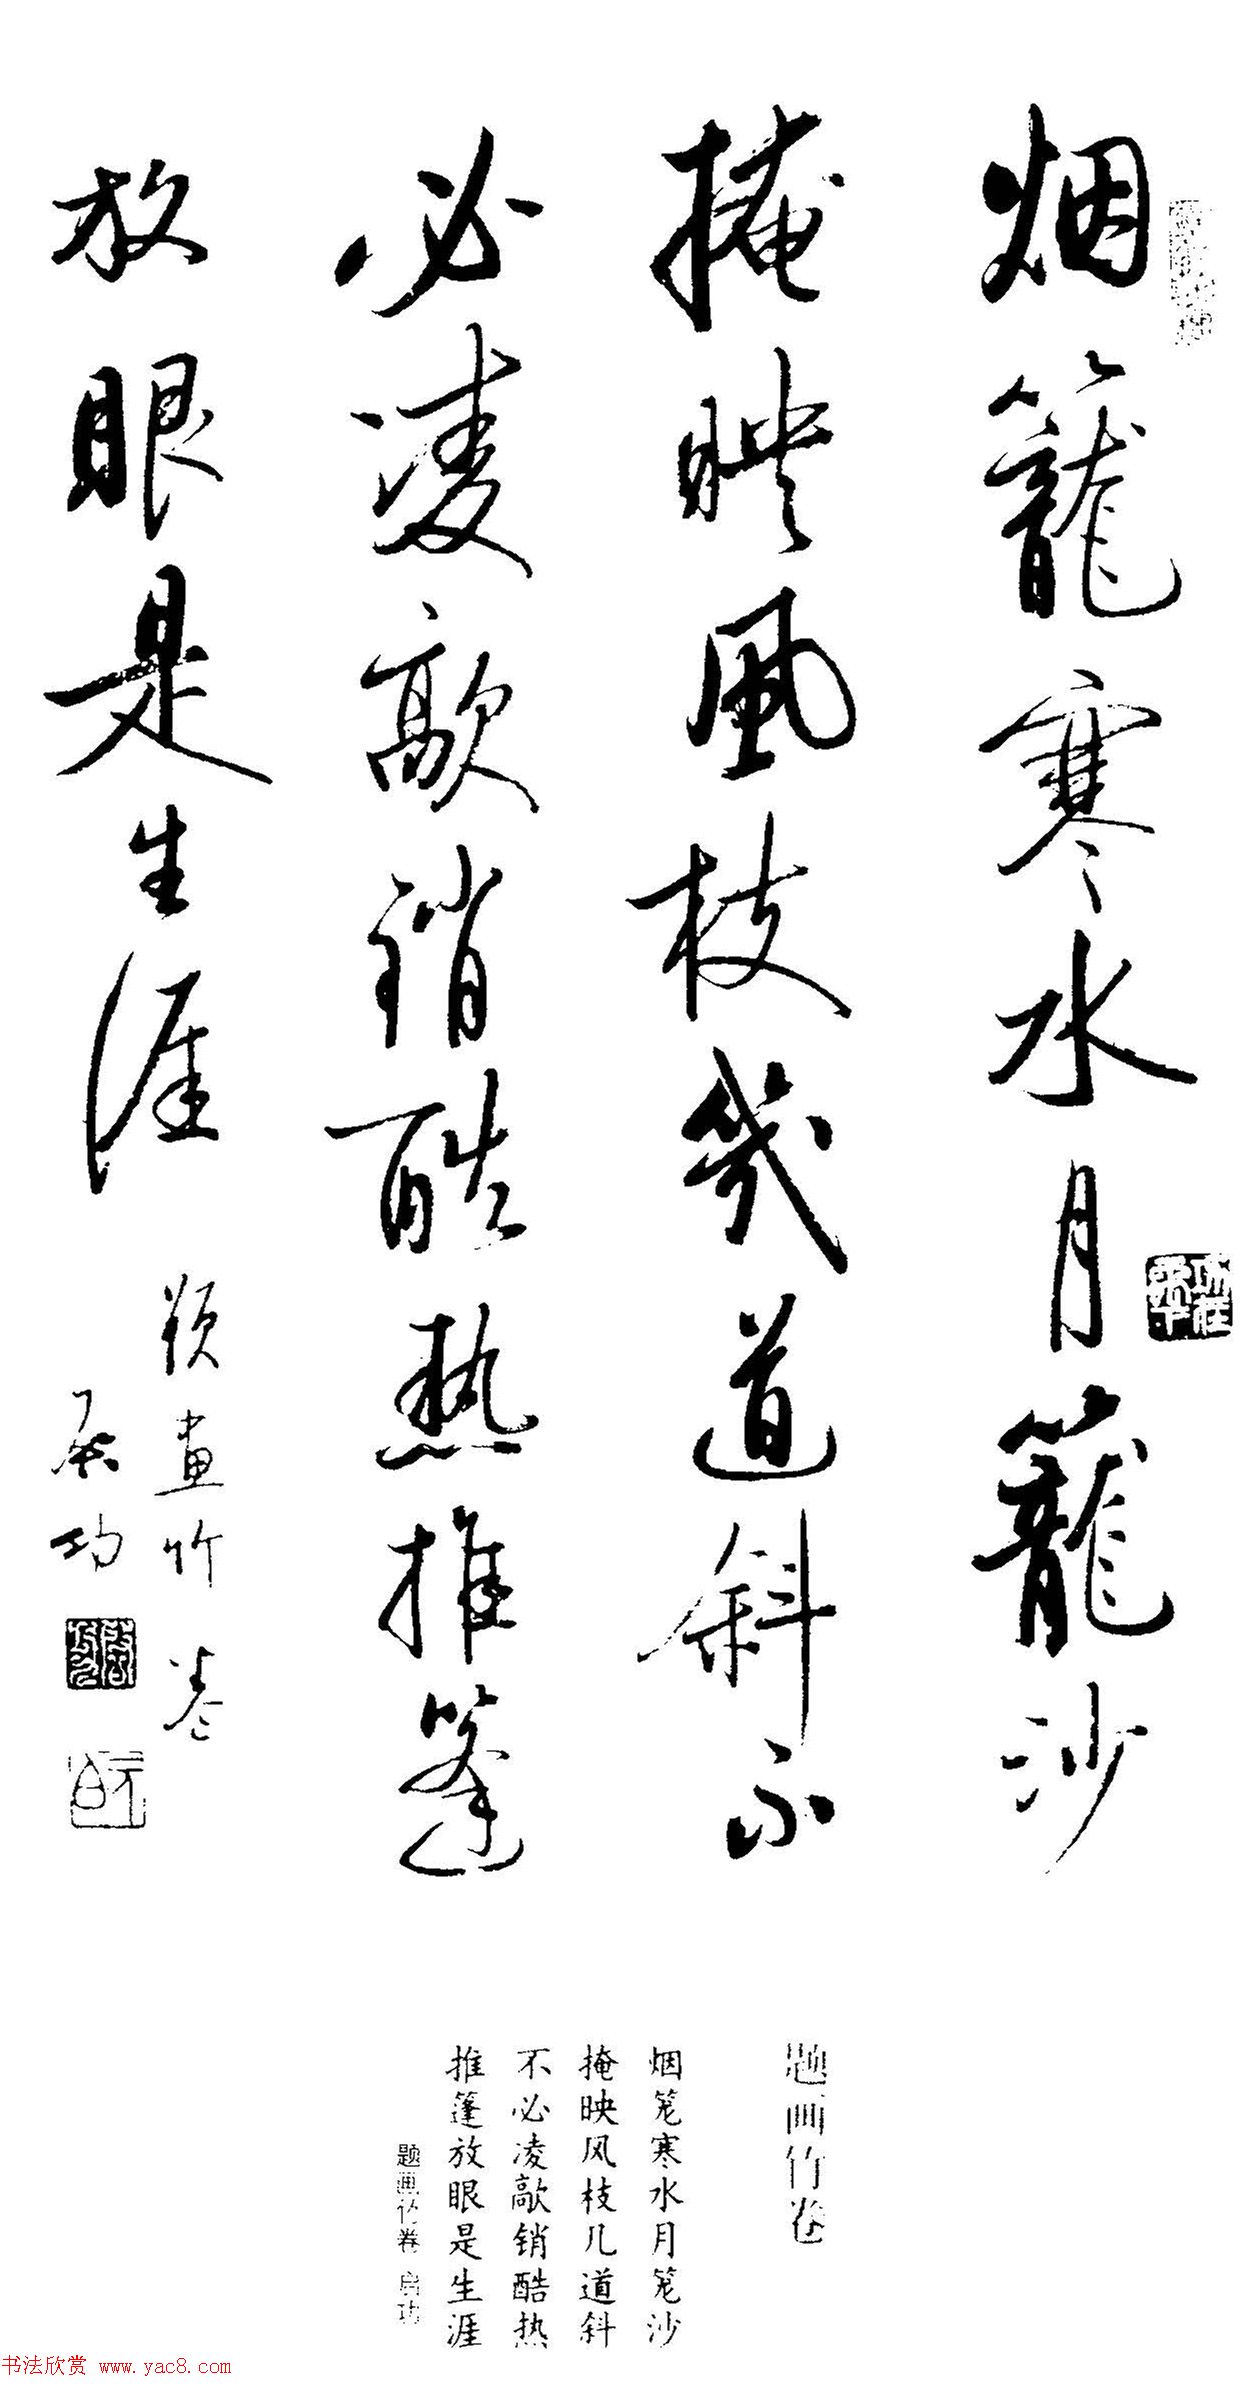 烟籠寒水月籠沙
掩映風枝幾道斜不
必凌歊銷酷热推篷
放眼是生涯
題畫竹卷
启功
元白
题画竹卷
烟笼寒水月笼沙
掩映风枝几道斜
不必凌歊销酷热
推篷放眼是生涯
题画竹卷 启功
书法欣赏 www.yac8.com